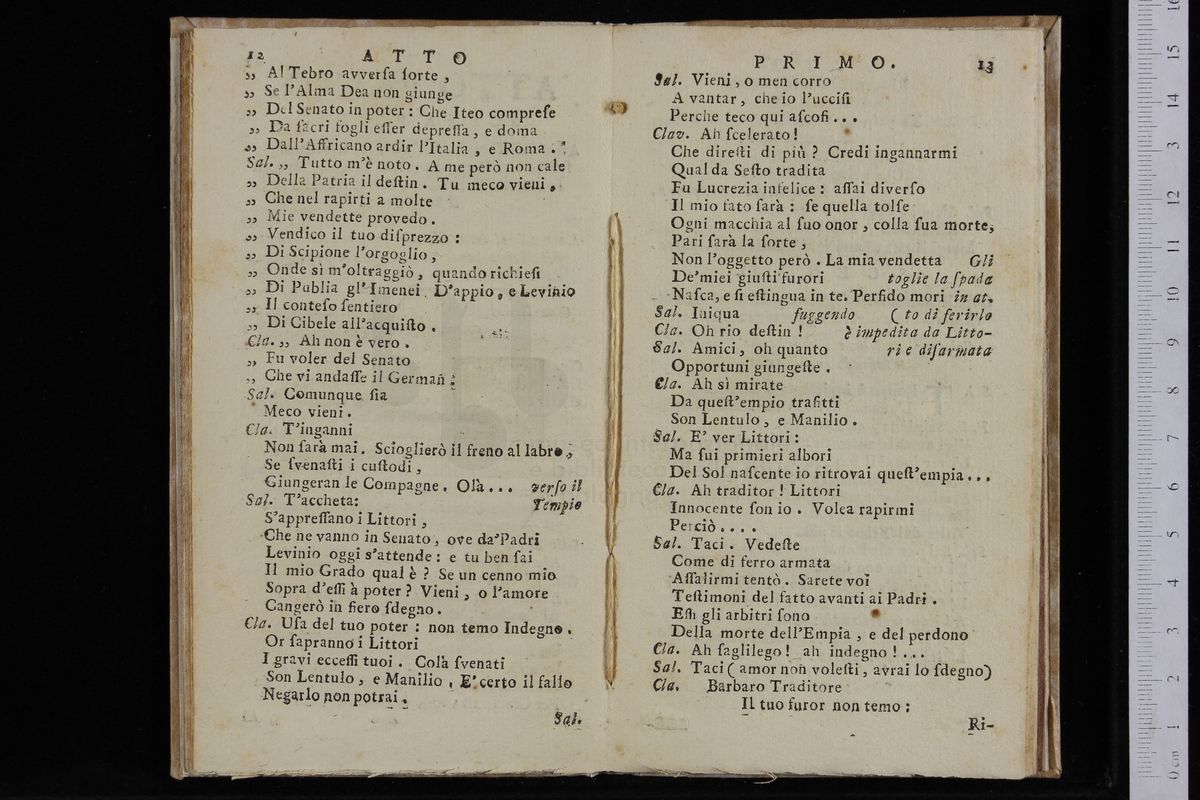 12 ATTO
„ Al Tebro avverſa ſorte ,
„ Se l'Alma Dea non giunge
„ Del Senato in poter : Che Iteo compreſe
„ Da ſacri fogli eſſer depreſſa , e doma
„ Dall'Affricano ardir l'Italia , e Roma .
Sal. „ Tutto m'è noto . A me però non cale
„ Della Patria il deſtin . Tu meco vieni ,
„ Che nel rapirti a molte
„ Mie vendette provedo .
„ Vendico il tuo diſprezzo :
„ Di Scipione l'orgoglio ,
„ Onde sì m'oltraggiò , quando richieſi
„ Di Publia gl'Imenei . D'appio , e Levinio
„ Il conteſo ſentiero
„ Di Cibele all'acquiſto .
Cla. „ Ah non è vero .
„ Fu voler del Senato
„ Che vi andaſſe il Germañ :
Sal. Comunque ſia
Meco vieni .
Cla. T'inganni
Non ſarà mai . Scioglierò il freno al labro ,
Se ſvenaſti i cuſtodi ,
Giungeran le Compagne . Olà ... verſo il
Sal. T'accheta: Tempio
S'appreſſano i Littori ,
Che ne vanno in Senato , ove da'Padri
Levinio oggi s'attende : e tu ben ſai
Il mio Grado qual è ? Se un cenno mio
Sopra d'eſſi à poter ? Vieni , o l'amore
Cangerò in fiero ſdegno .
Cla. Uſa del tuo poter : non temo Indegno .
Or ſapranno i Littori
I gravi ecceſſi tuoi . Colà ſvenati
Son Lentulo , e Manilio . E' certo il fallo
Negarlo non potrai .
Sal.
PRIMO. 13
Sal. Vieni , o men corro
A vantar , che io l'ucciſi
Perche teco qui aſcoſi ...
Clav. Ah ſcelerato !
Che direſti di più ? Credi ingannarmi
Qual da Seſto tradita
Fu Lucrezia infelice : aſſai diverſo
Il mio fato ſarà : ſe quella tolſe
Ogni macchia al ſuo onor , colla ſua morte,
Pari ſarà la ſorte ,
Non l'oggetto però . La mia vendetta Gli
De'miei giuſti furori toglie la ſpada
Naſca, e ſi eſtingua in te. Perfido mori in at-
Sal. Iniqua fuggendo ( to di ferirlo
Cla. Oh rio deſtin ! è impedita da Litto-
Sal. Amici , oh quanto ri e diſarmata
Opportuni giungeſte .
Cla. Ah sì mirate
Da queſt'empio trafitti
Son Lentulo , e Manilio .
Sal. E' ver Littori :
Ma ſui primieri albori
Del Sol naſcente io ritrovai queſt'empia ...
Cla. Ah traditor ! Littori
Innocente ſon io . Volea rapirmi
Perciò ....
Sal. Taci . Vedeſte
Come di ferro armata
Aſſalirmi tentò . Sarete voi
Teſtimoni del fatto avanti ai Padri .
Eſſi gli arbitri ſono
Della morte dell'Empia , e del perdono
Cla. Ah ſaglilego ! ah indegno ! ...
Sal. Taci ( amor non voleſti , avrai lo ſdegno)
Cla. Barbaro Traditore
Il tuo furor non temo :
Ri-